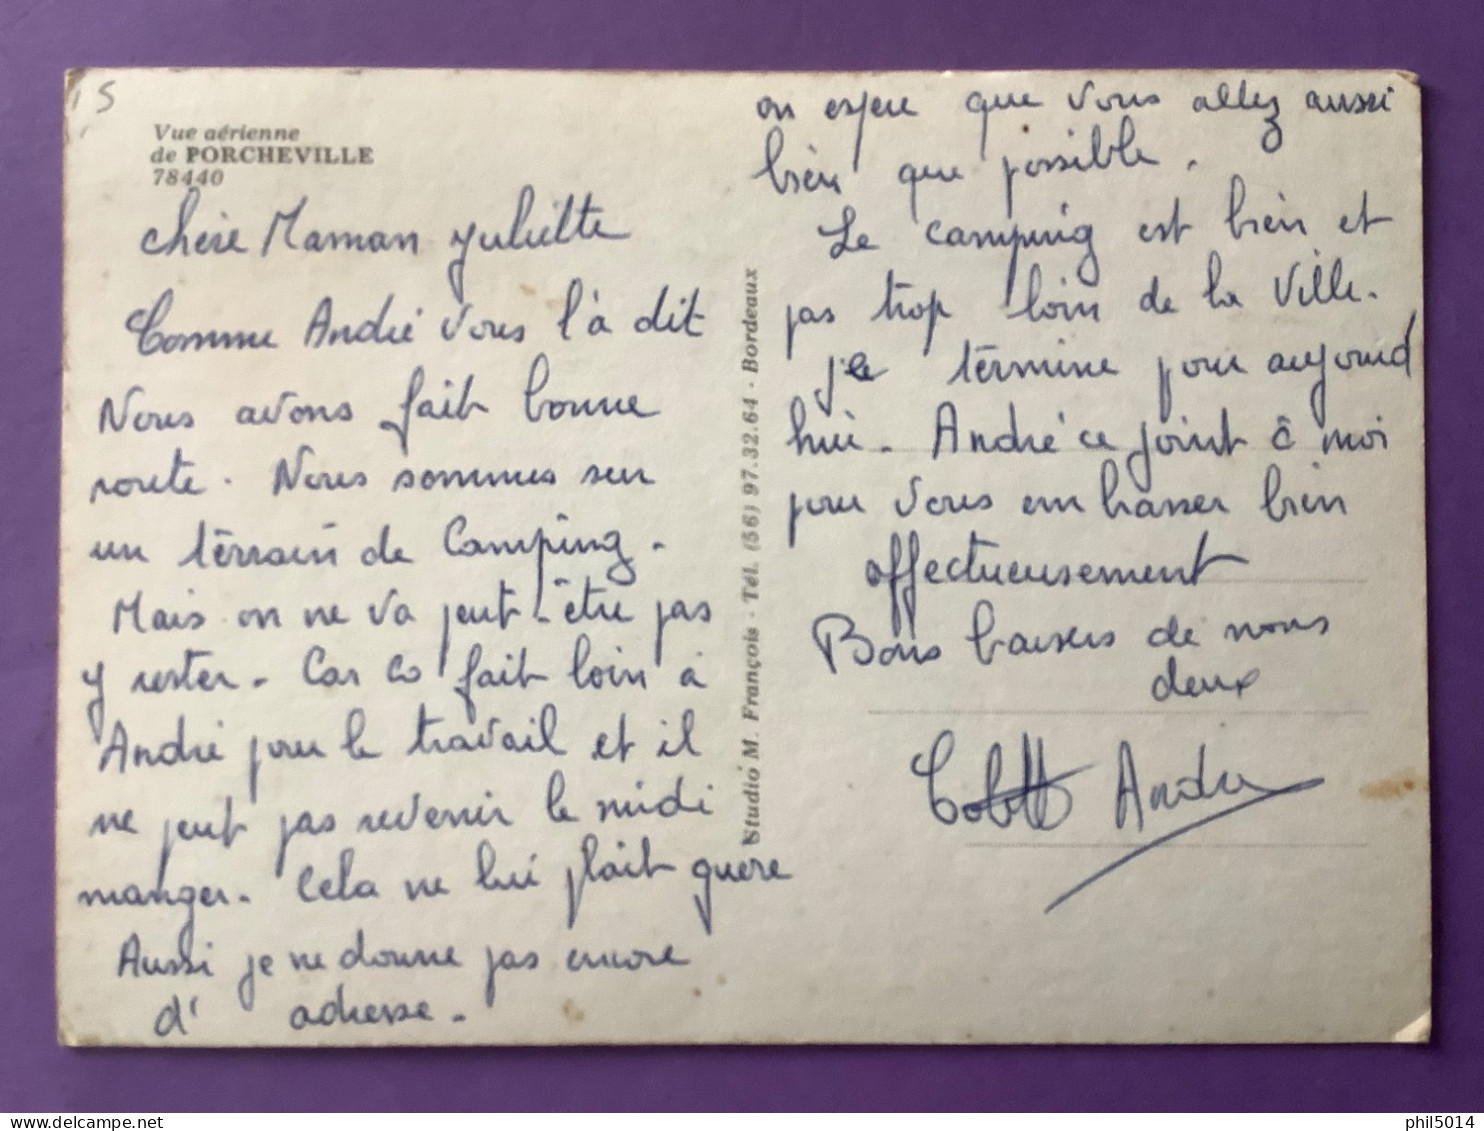 5
Vue aérienne
de PORCHEVILLE
78440
chère Maman Juliette
Comme André vous l'à dit
Nous avons fait bonne
route. Nous sommes sur
un térrain de Camping.
Mais on ne va peut-être pas
y rester. Car ca fait loin à
André pour le travail et il
ne peut pas revenir le midi
manger. Cela ne lui plait guere
Aussi je ne donne pas encore
d' adresse.
Studio M. François - Tél. (56) 97.32.64 - Bordeaux
on espere que vous allez aussi
bien que possible.
Le camping est bien et
pas trop loin de la Ville.
je términe pour aujourd
hui. André ce joint à moi
pour vous embrasser bien
affectueusement
Bons baisers de nous
deux
Colette André
phil5014
delcampe.net